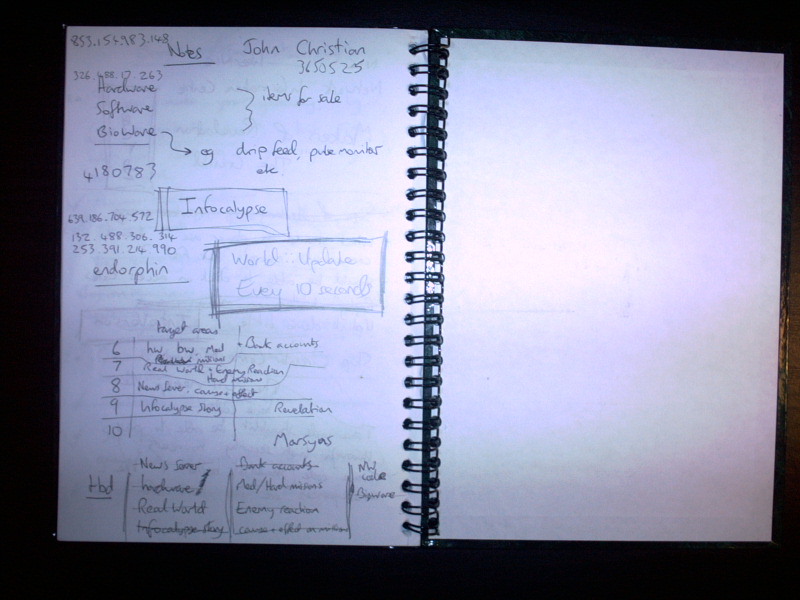 853.154.983.148
Notes John Christian
3650525
326.488.17.263
Hardware
Software
BioWare
items for sale
eg drip feed, pulse monitor
etc
4180783
Infocalypse
639.186.704.572
132.488.306.314
253.391.214.990
endorphin
World::Update
Every 10 seconds
target areas
6 hw bw Med + Bank accounts
missions
7 Real World + Enemy Reaction
Hard missions
8 News Server, cause + effect
9 Infocalypse Story Revelation
10 Marsyas
tbd
News Server Bank accounts
hardware Med/Hard missions Bioware
Real World Enemy reaction
Infocalypse Story cause + effect on mission